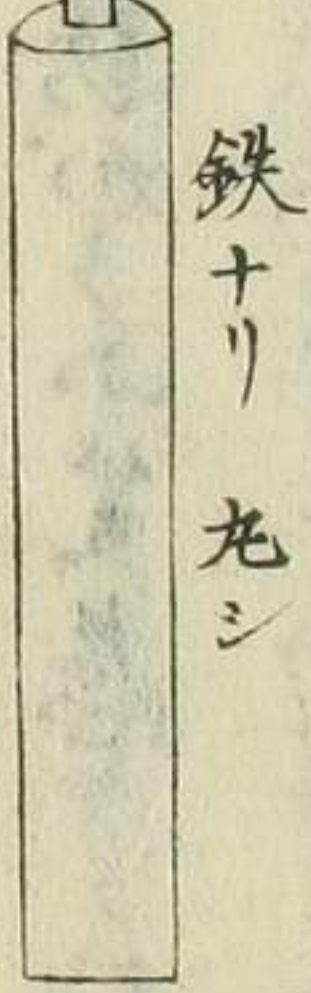 鉄ナリ 丸シ